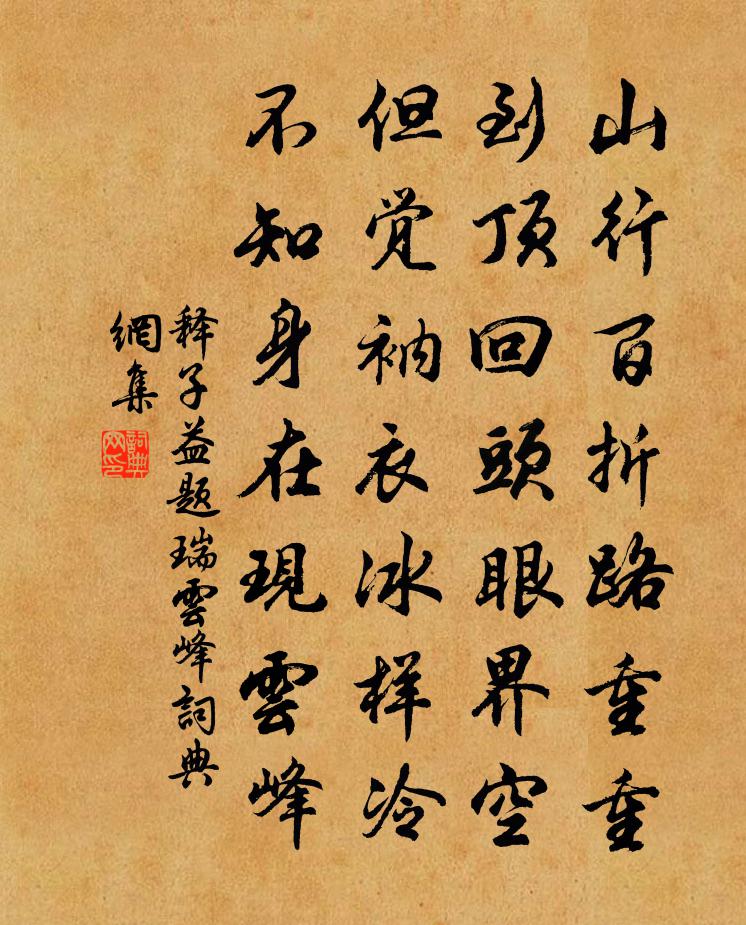 山行百折路重重
到顶回頭眼界空
但觉衲衣冰样冷
不知身在現雲峰
释子益题瑞雲峰詞典
網集
詞典
网印